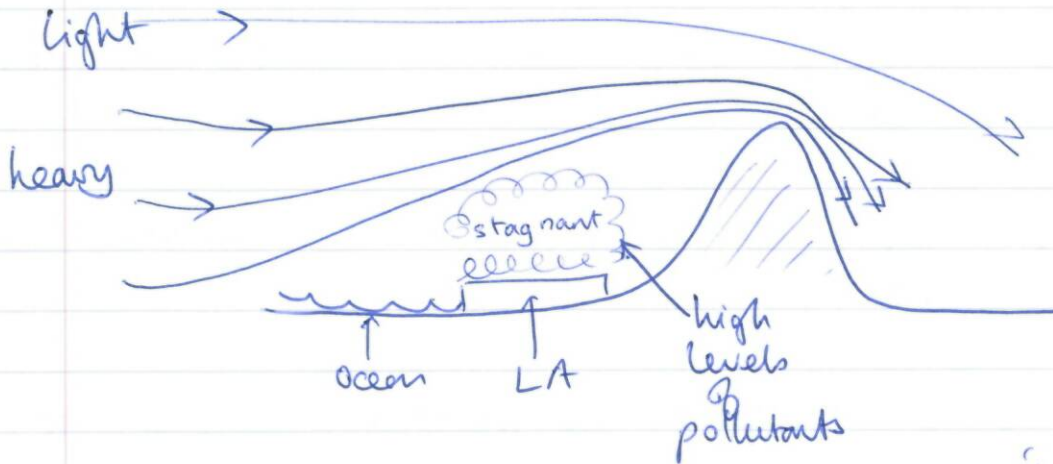 light
heavy
stagnant
ocean
LA
high
levels
of
pollutants